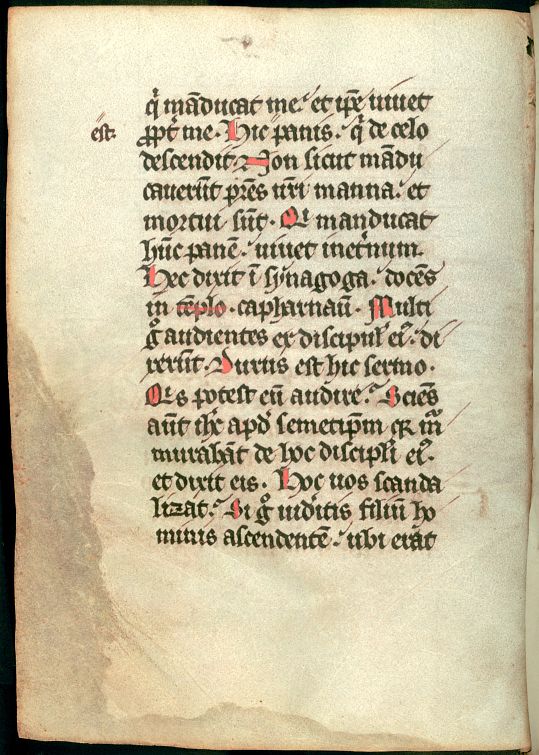 q̄ māducat me. et ip̄e uiuet
est. ꝓpt̄ me. Hic panis. q̄ de celo
descendit. Non sicut mādu
cauerūt pr̄es ur̄i manna. et
mortui sūt. Qi manducat
hūc panē. uiuet in et̄num.
Hec dixit ī synagoga. docēs
in tēplo. capharnaū. Multi
gͦ audientes ex discipul' ei᷒. di
xerūt. Durus est hic sermo.
Qis potest eū audire. Sciēs
aūt ih̄c apd̄ semetip̄m qꝛ m̄
murabāt de hoc discipl̄i ei᷒.
et dixit eis. Hoc uos scanda
lizat. Si gͦ uid̄itis filiū ho
minis ascendentē. ubi erat